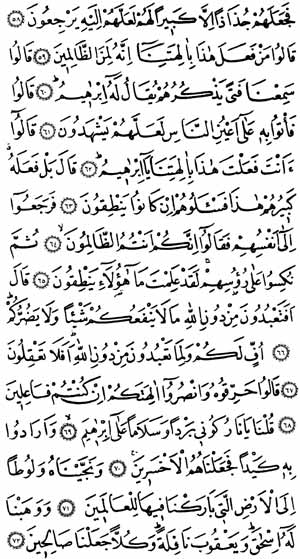 فَجَعَلَهُمْ جُذَاذًا اِلَّا كَبٖيرًا لَهُمْ لَعَلَّهُمْ اِلَيْهِ يَرْجِعُونَ ﴿٥٨﴾
قَالُوا مَنْ فَعَلَ هٰذَا بِاٰلِهَتِنَا اِنَّهُ لَمِنَ الظَّالِمٖينَ ﴿٥٩﴾ قَالُوا
سَمِعْنَا فَتًى يَذْكُرُهُمْ يُقَالُ لَهُ اِبْرٰهٖيمُ ﴿٦٠﴾ قَالُوا
فَاْتُوا بِهٖ عَلٰى اَعْيُنِ النَّاسِ لَعَلَّهُمْ يَشْهَدُونَ ﴿٦١﴾ قَالُوا
ءَاَنْتَ فَعَلْتَ هٰذَا بِاٰلِهَتِنَا يَا اِبْرٰهٖيمُ ﴿٦٢﴾ قَالَ بَلْ فَعَلَهُ
كَبٖيرُهُمْ هٰذَا فَسْـَٔلُوهُمْ اِنْ كَانُوا يَنْطِقُونَ ﴿٦٣﴾ فَرَجَعُوا
اِلٰى اَنْفُسِهِمْ فَقَالُوا اِنَّكُمْ اَنْتُمُ الظَّالِمُونَ ﴿٦٤﴾ ثُمَّ
نُكِسُوا عَلٰى رُؤُسِهِمْ لَقَدْ عَلِمْتَ مَا هٰٓؤُلَاءِ يَنْطِقُونَ ﴿٦٥﴾ قَالَ
اَفَتَعْبُدُونَ مِنْ دُونِ اللّٰهِ مَا لَا يَنْفَعُكُمْ شَيْـًٔا وَلَا يَضُرُّكُمْ
﴿٦٦﴾ اُفٍّ لَكُمْ وَلِمَا تَعْبُدُونَ مِنْ دُونِ اللّٰهِ اَفَلَا تَعْقِلُونَ
﴿٦٧﴾ قَالُوا حَرِّقُوهُ وَانْصُرُوا اٰلِهَتَكُمْ اِنْ كُنْتُمْ فَاعِلٖينَ
﴿٦٨﴾ قُلْنَا يَا نَارُ كُونٖى بَرْدًا وَسَلَامًا عَلٰى اِبْرٰهٖيمَ ﴿٦٩﴾ وَاَرَادُوا
بِهٖ كَيْدًا فَجَعَلْنَاهُمُ الْاَخْسَرٖينَ ﴿٧٠﴾ وَنَجَّيْنَاهُ وَلُوطًا
اِلَى الْاَرْضِ الَّتٖى بَارَكْنَا فٖيهَا لِلْعَالَمٖينَ ﴿٧١﴾ وَوَهَبْنَا
لَهُ اِسْحٰقَ وَيَعْقُوبَ نَافِلَةً وَكُلًّا جَعَلْنَا صَالِحٖينَ ﴿٧٢﴾